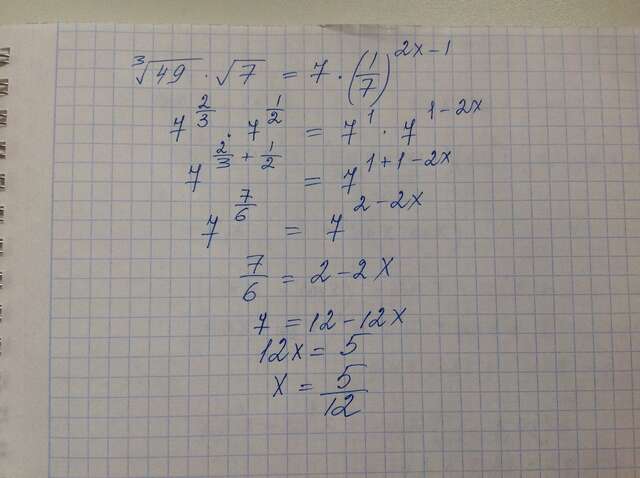 ∛49 · √7 = 7 · (1/7)^(2x-1)
7^(2/3) · 7^(1/2) = 7^1 · 7^(1-2x)
7^(2/3 + 1/2) = 7^(1+1-2x)
7^(7/6) = 7^(2-2x)
7/6 = 2-2x
7 = 12-12x
12x = 5
x = 5/12